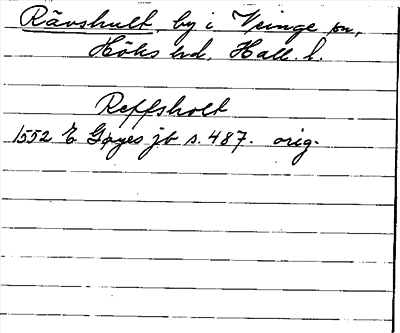 Rävshult, by i Veinge sn,
Höks hd, Hall. l.
Reffsholt
1552 E Gøyes jb s. 487. orig.